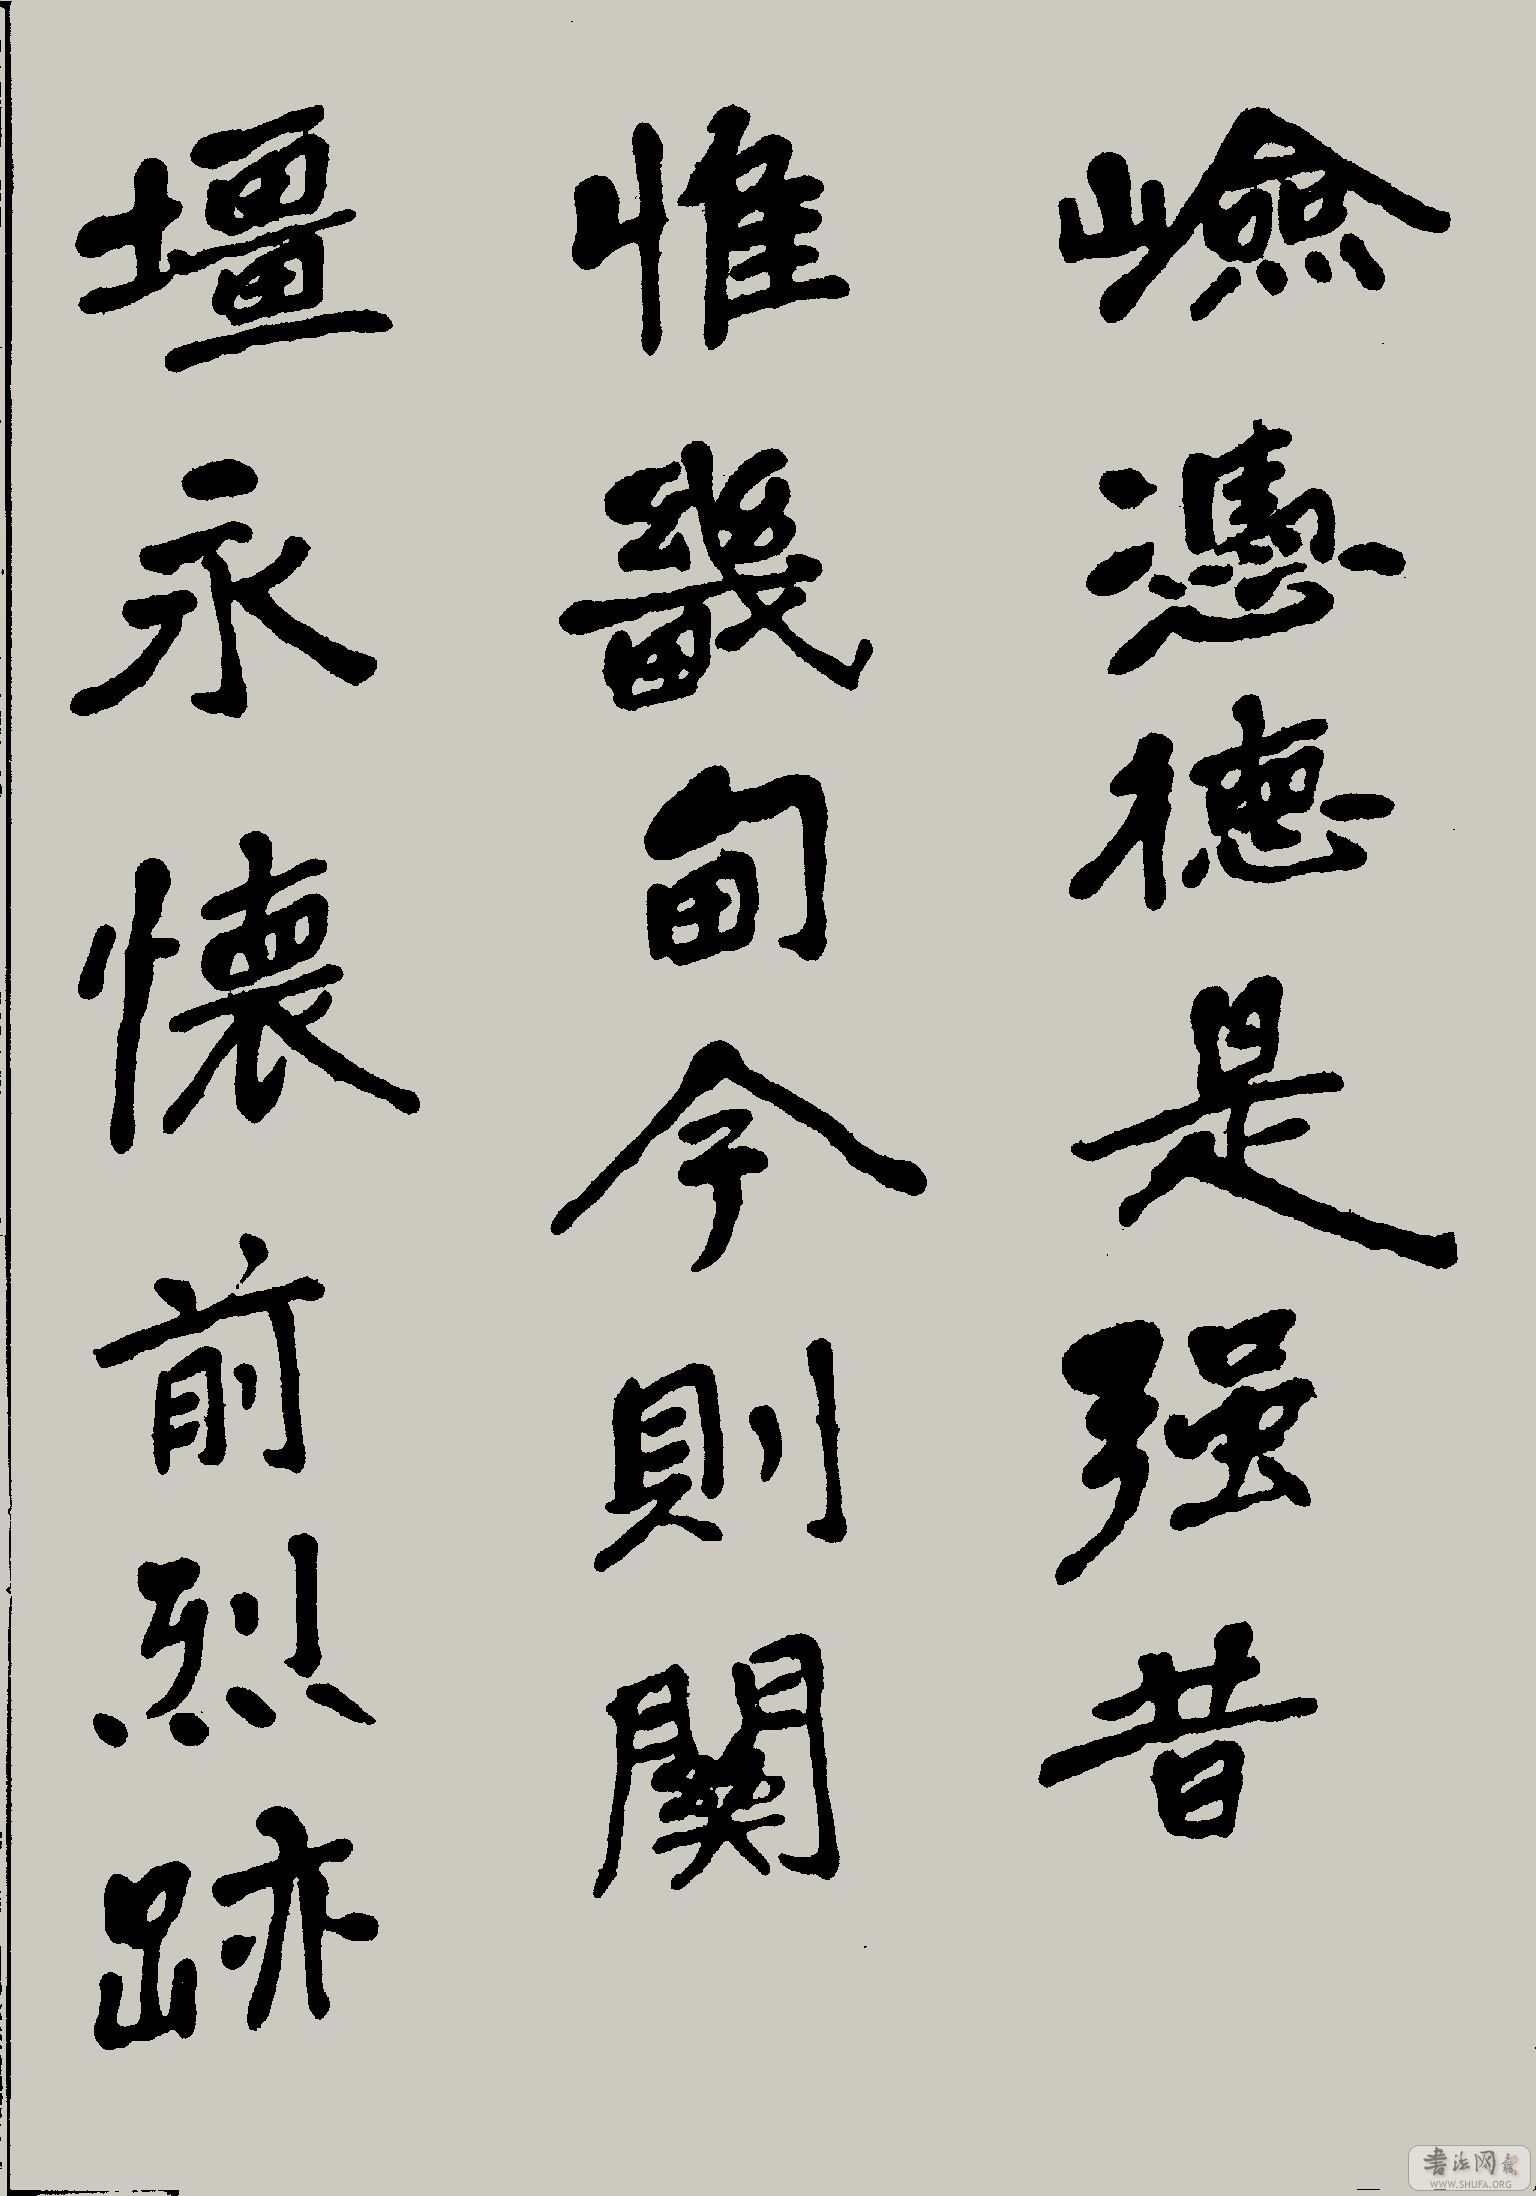 嶮憑德是强昔
惟畿甸今則關
壃永懷前烈跡
书法网
WWW.SHUFA.ORG